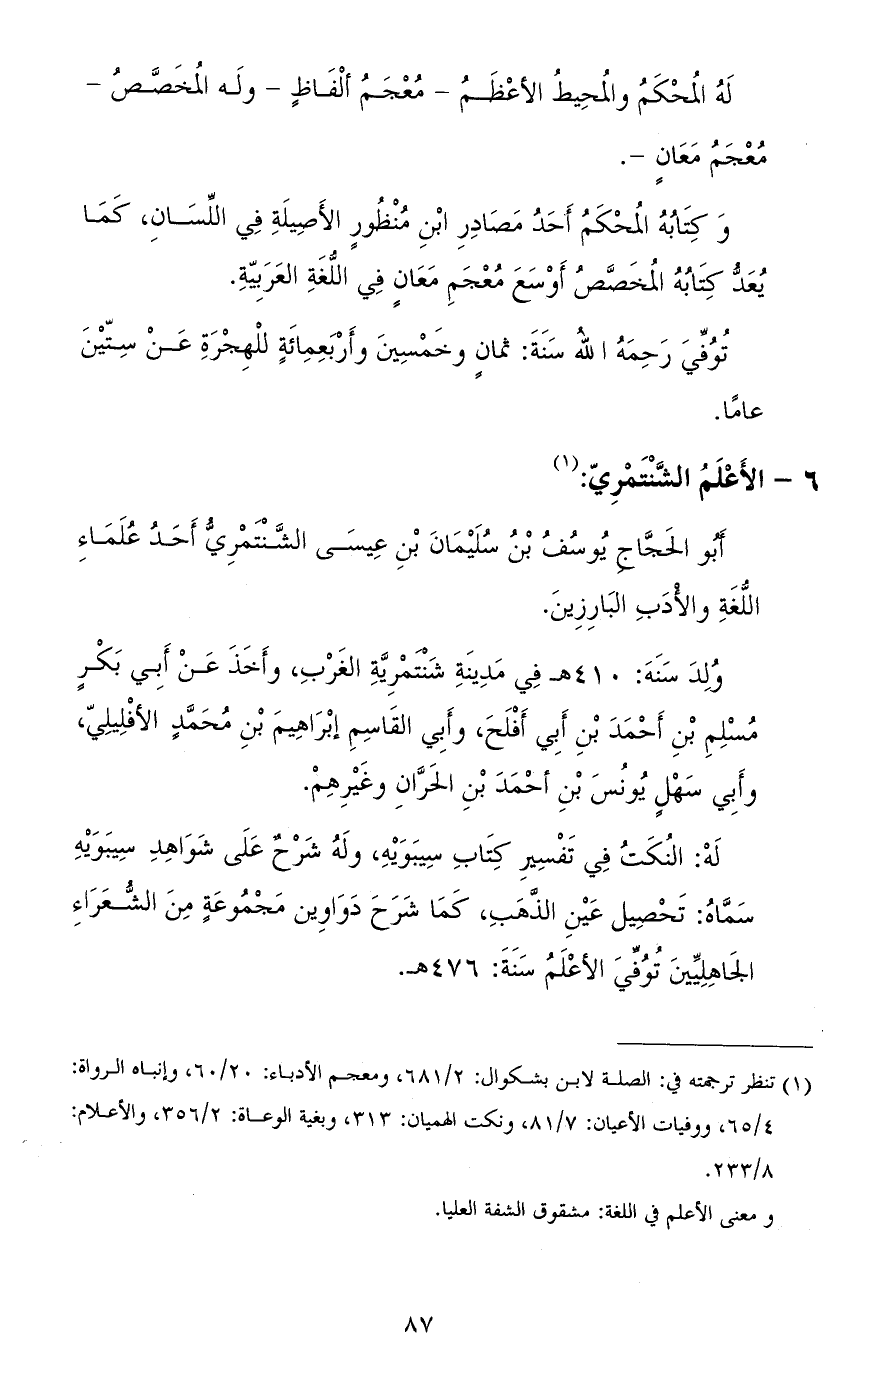 لَهُ المُحْكَمُ والمُحِيطُ الأعْظَمُ – مُعْجَمُ ألْفَاظٍ – ولَه المُخَصَّصُ –
مُعْجَمُ مَعَانٍ –.
وَ كِتَابُهُ المُحْكَمُ أَحَدُ مَصَادِرِ ابْنِ مُنْظُورٍ الأَصِيلَةِ فِي اللِّسَانِ، كَمَا
يُعَدُّ كِتَابُهُ المُخَصَّصُ أَوْسَعَ مُعْجَمِ مَعَانٍ فِي اللُّغَةِ العَرَبِيَّةِ.
تُوُفِّيَ رَحِمَهُ اللهُ سَنَةَ: ثمانٍ وخَمْسِينَ وأَرْبَعِمِائَةٍ للْهِجْرَةِ عَنْ سِتّيْنَ
عامًا.
٦ – الأَعْلَمُ الشَّنْتَمْرِيّ:(١)
أَبُو الحَجَّاجِ يُوسُفُ بْنُ سُلَيْمَانَ بْنِ عِيسَى الشَّنْتَمْرِيُّ أَحَدُ عُلَمَاءِ
اللُّغَةِ والأدَبِ البَارِزِينَ.
وُلِدَ سَنَةَ: ٤١٠هـ فِي مَدِينَةِ شَنْتَمْرِيَّةِ الغَرْبِ، وأَخَذَ عَنْ أَبِي بَكْرٍ
مُسْلِمِ بْنِ أَحْمَدَ بْنِ أَبِي أَفْلَحَ، وأَبِي القَاسِمِ إبْرَاهِيمَ بْنِ مُحَمَّدٍ الأفْلِيلِيّ،
وأَبِي سَهْلٍ يُونُسَ بْنِ أحْمَدَ بْنِ الحَرَّانِ وغَيْرِهِمْ.
لَهْ: النُكَتُ فِي تَفْسِيرِ كِتَابِ سِيبَوَيْهِ، ولَهُ شَرْحٌ عَلَى شَوَاهِدِ سِيبَوَيْهِ
سَمَّاهُ: تَحْصِيل عَيْنِ الذَّهَبِ، كَمَا شَرَحَ دَوَاوِين مَجْمُوعَةٍ مِنَ الشُّعَرَاءِ
الجَاهِلِيِّينَ تُوُفِّيَ الأعْلَمُ سَنَةَ: ٤٧٦هـ.
(١) تنظر ترجمته في: الصلة لابن بشكوال: ٦٨١/٢، ومعجم الأدباء: ٦٠/٢٠، وإنباه الرواة:
٦٥/٤، ووفيات الأعيان: ٨١/٧، ونكت الهميان: ٣١٣، وبغية الوعاة: ٣٥٦/٢، والأعلام:
٢٣٣/٨.
و معنى الأعلم في اللغة: مشقوق الشفة العليا.
٨٧